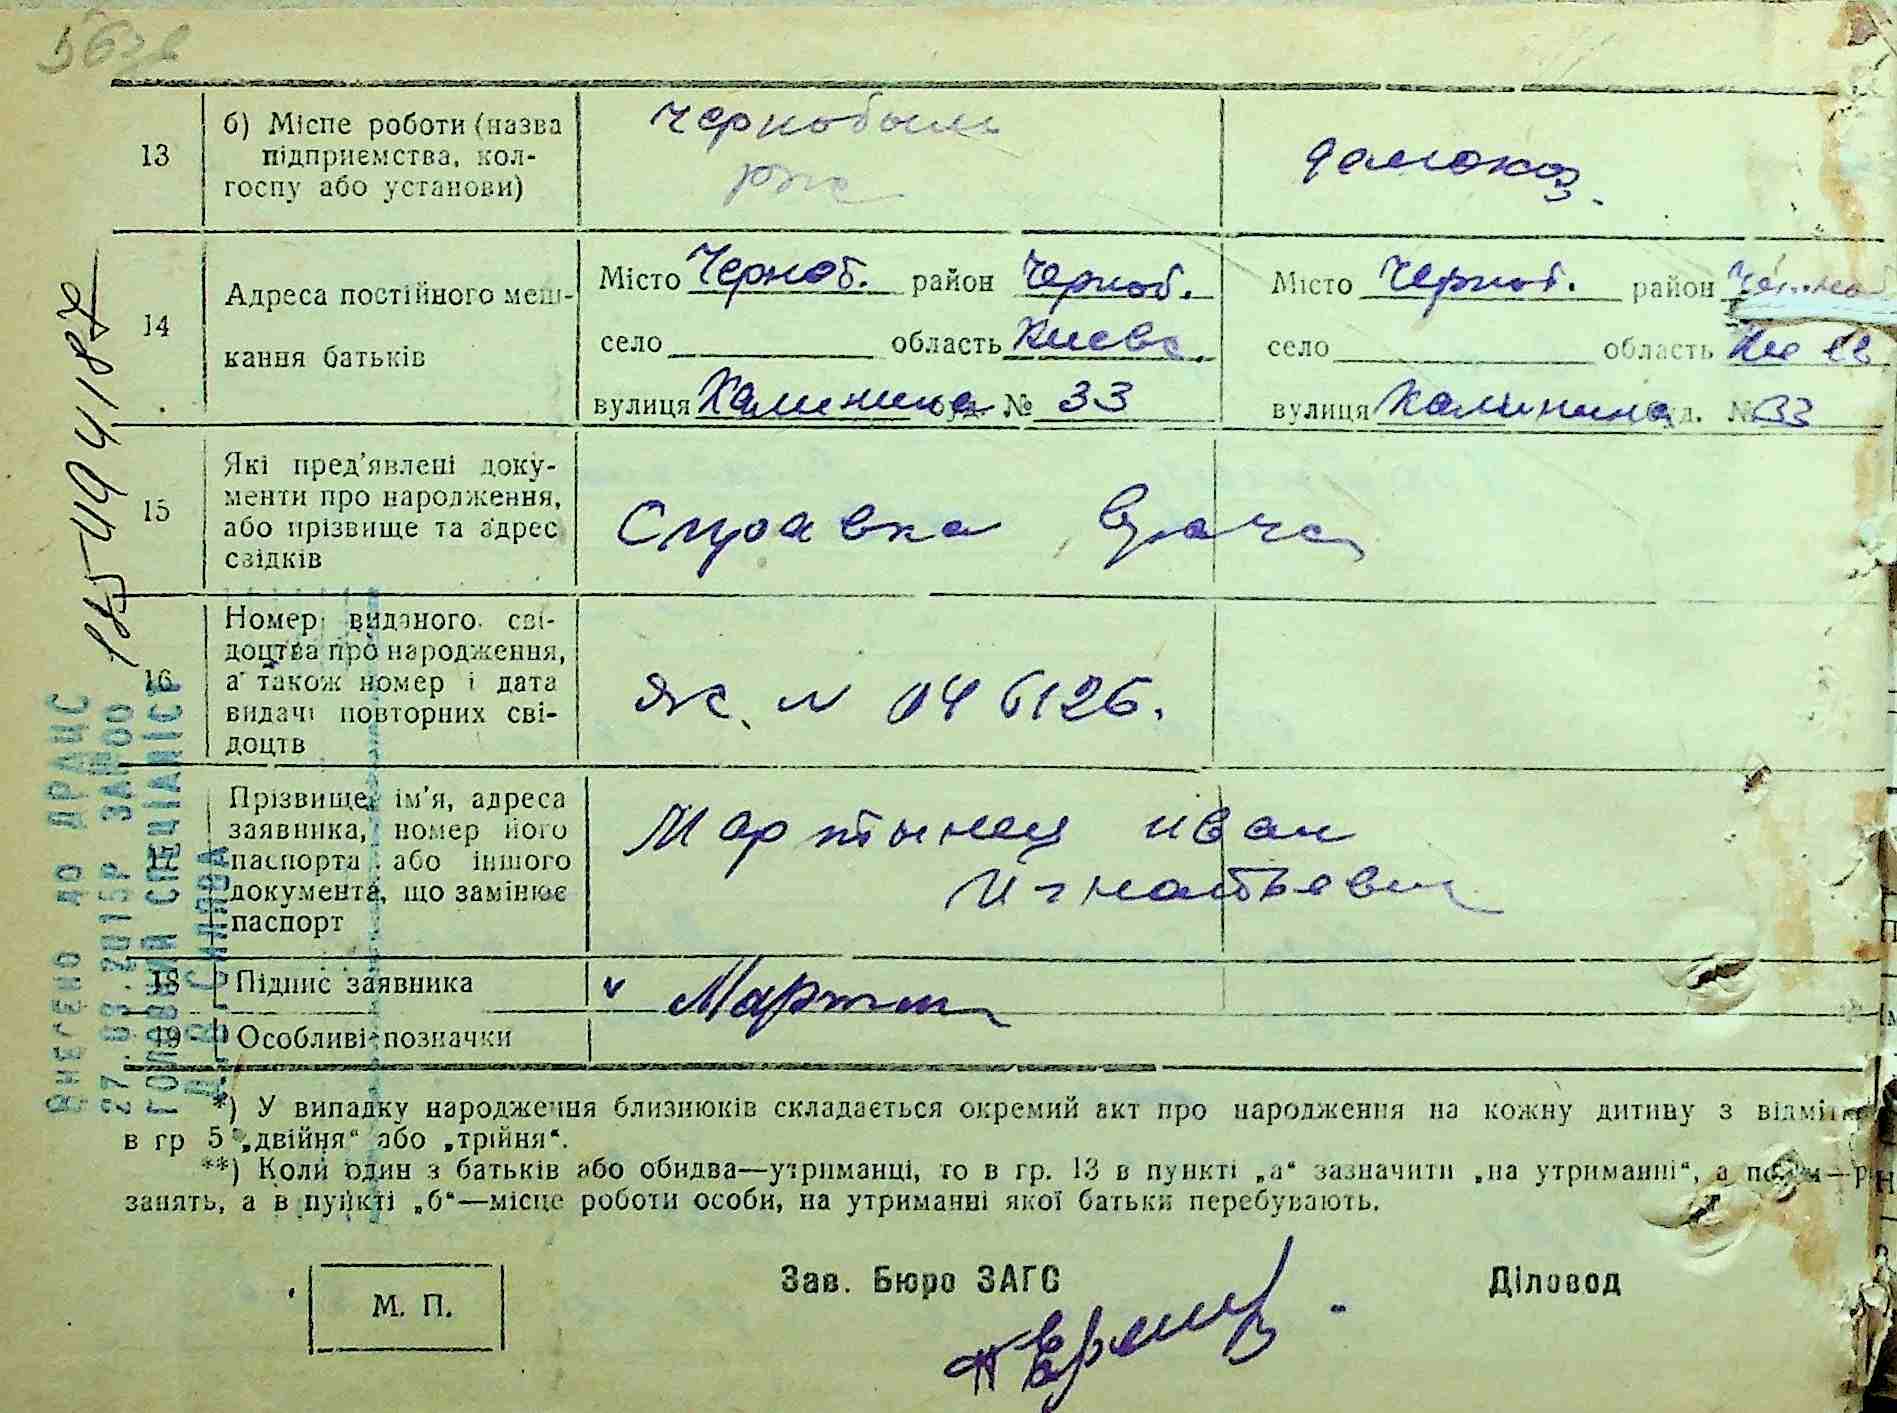 13
б) Місце роботи (назва
підприємства, кол-
госпу або установи)
Чернобыль
рпс
домохоз.
14
Адреса постійного меш-
кання батьків
Місто Черноб. район Черноб.
село область Киевс.
вулиця Калинина буд. № 33
Місто Черноб. район Черноб
село область Киев
вулиця Калинина буд. № 33
15
Які пред'явлені доку-
менти про народження,
або прізвище та адрес
свідків
Справка врача
16
Номер виданого сві-
доцтва про народження,
а також номер і дата
видачі повторних сві-
доцтв
ЯС. N 046126.
17
Прізвище, ім'я, адреса
заявника, номер його
паспорта або іншого
документа, що замінює
паспорт
Мартынец Иван
Игнатьевич
18
Підпис заявника
v Март
19
Особливі позначки
*) У випадку народження близнюків складається окремий акт про народження на кожну дитину з відміт
в гр 5 „двійня“ або „трійня“.
**) Коли один з батьків або обидва—утриманці, то в гр. 13 в пункті „а“ зазначити „на утриманні“, а
занять, а в пункті „б“—місце роботи особи, на утриманні якої батьки перебувають.
М. П.
Зав. Бюро ЗАГС
Діловод
Внесено до ДРАЦС
27.08.2015р
ГОЛОВНИЙ СПЕЦІАЛІСТ